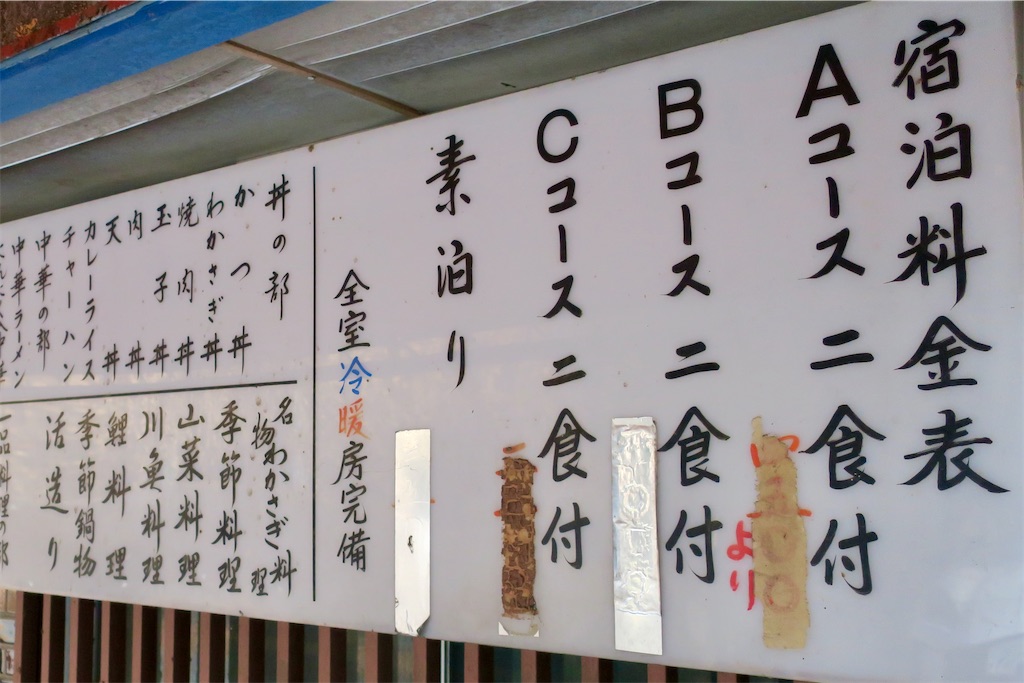 宿泊料金表
Aコース 二食付
より
Bコース 二食付
Cコース 二食付
素泊り
全室冷暖房完備
丼の部
かつ丼
わかさぎ丼
焼肉丼
玉子丼
肉丼
天丼
カレーライス
チャーハン
中華の部
中華ラーメン
名物わかさぎ料理
季節料理
山菜料理
川魚料理
鯉料理
季節鍋物
活造り
一品料理の部